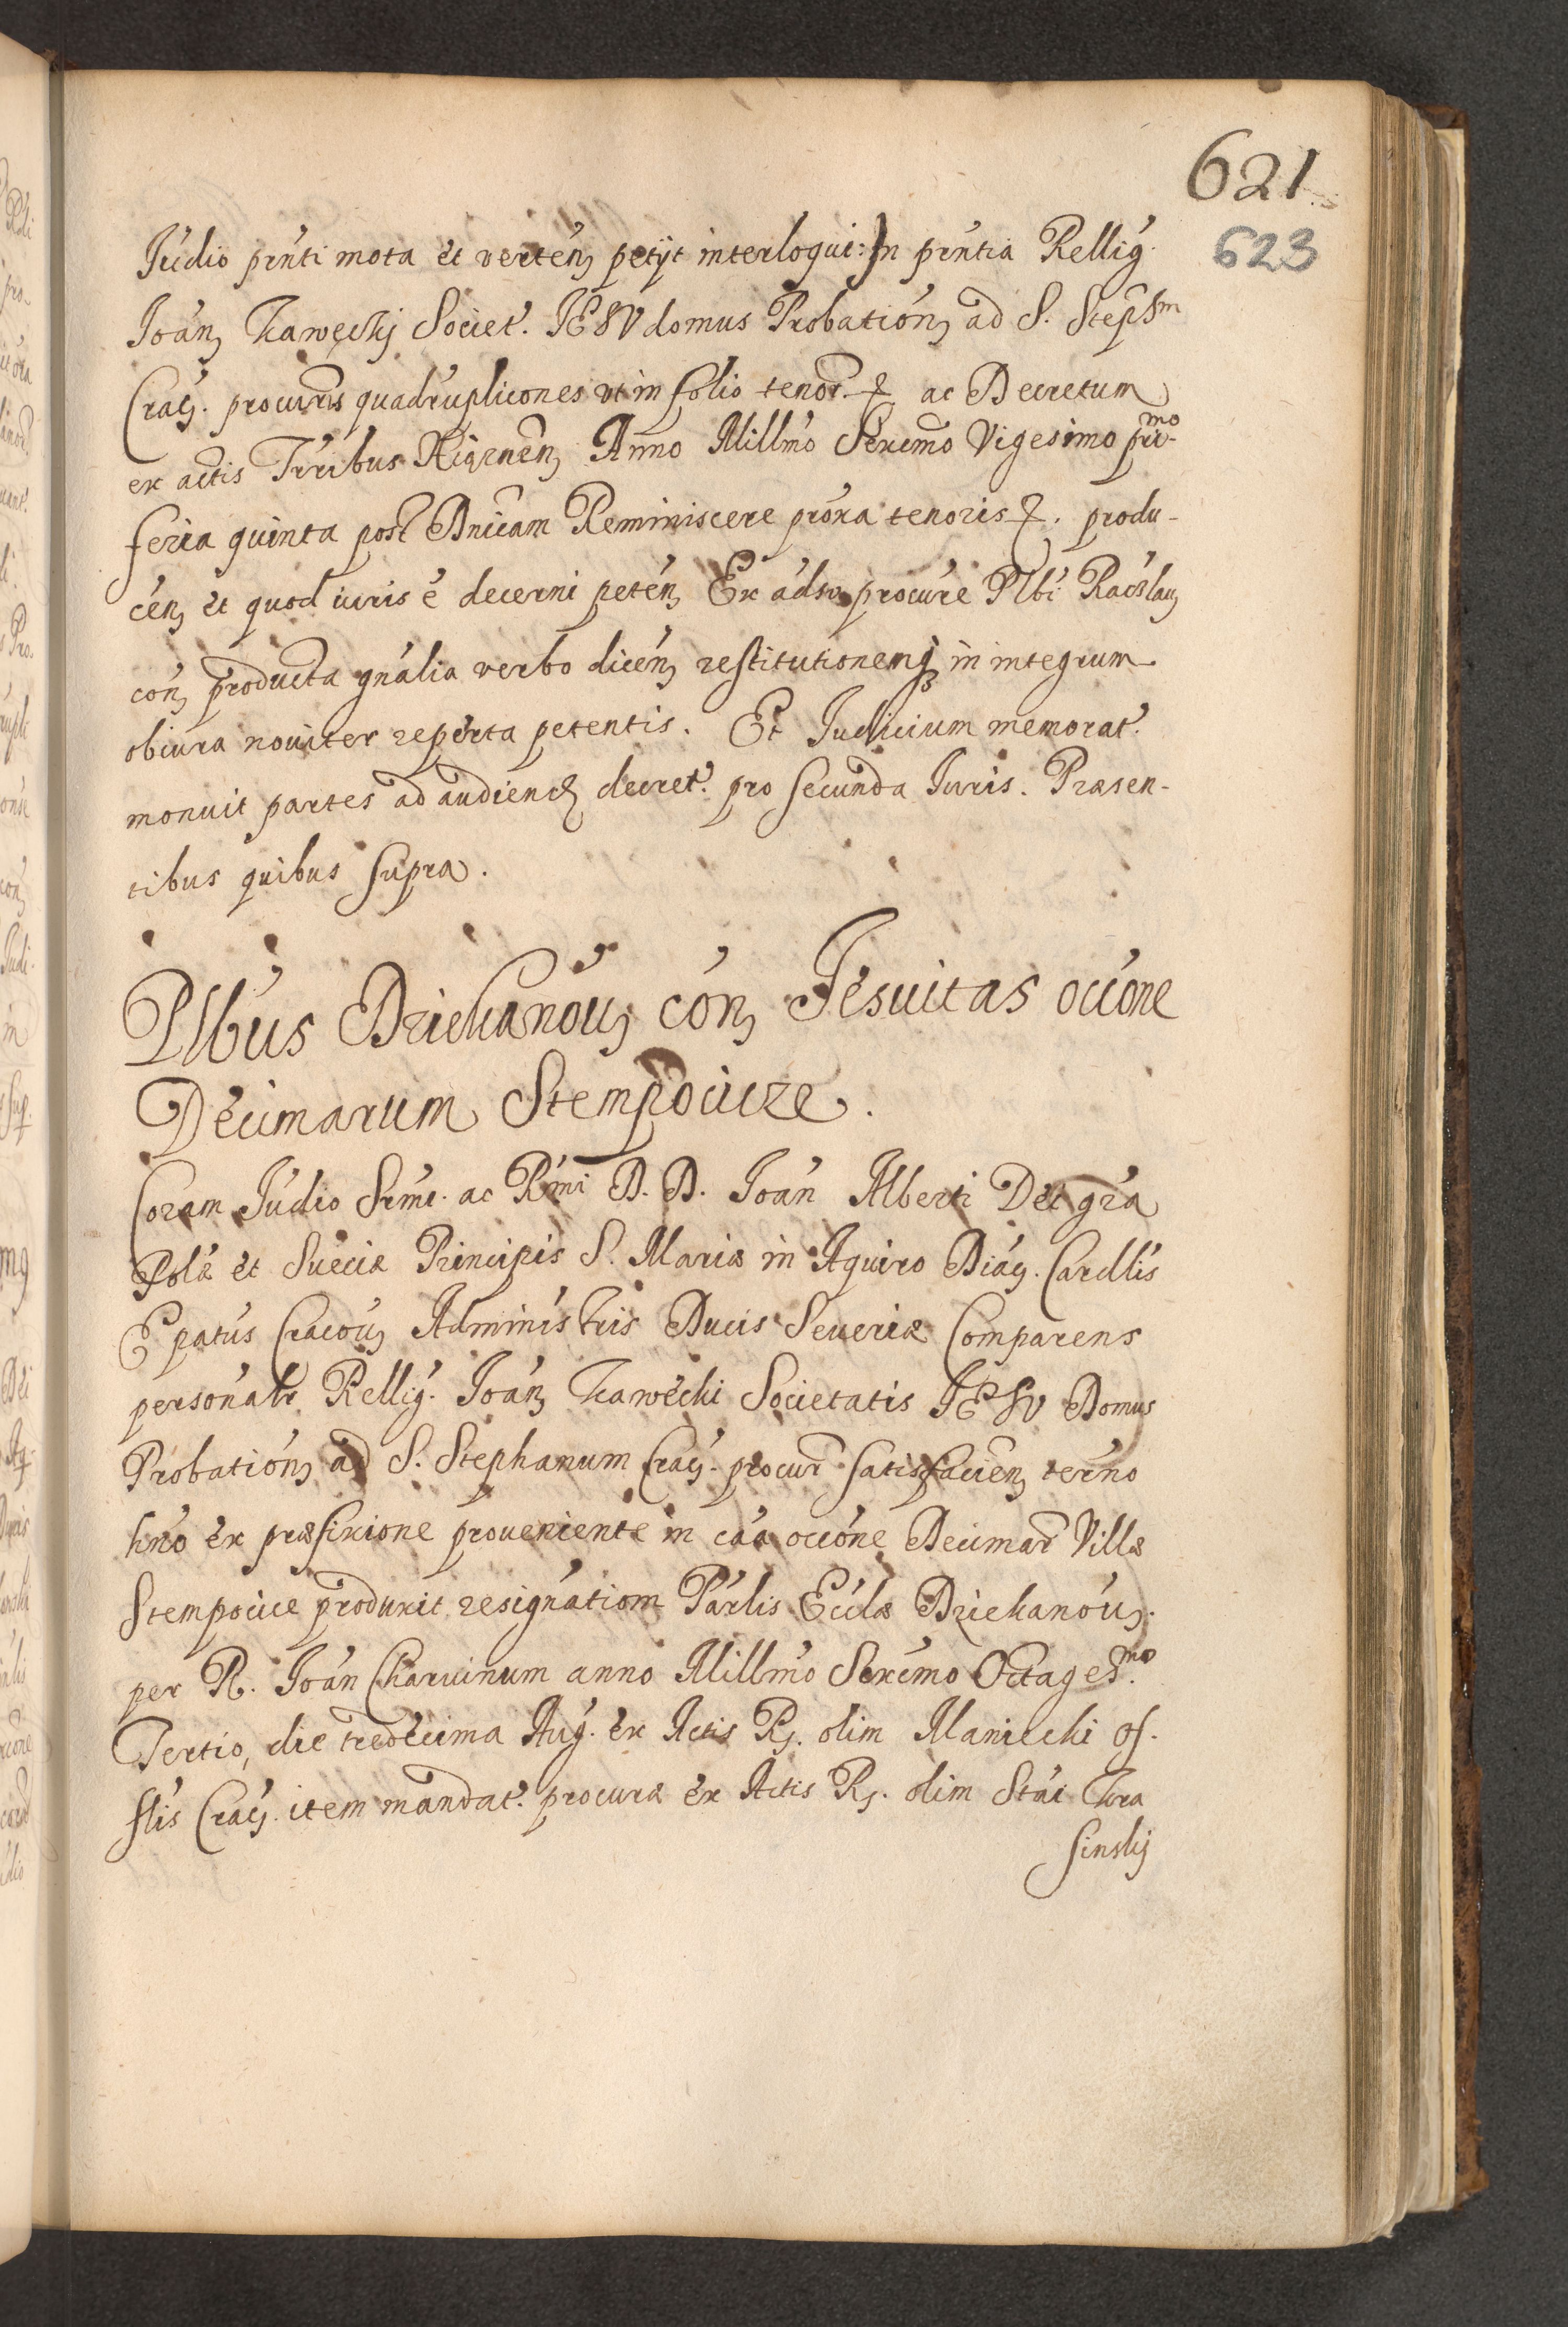 621
623
Iúdio pn̄ti mota èt verteń petijt interloqui: In pn̄tia Rellig.
Ioáń Ławęckij Societ. IESV domus Probatioń ad S. Stepħm
Crać. procurīs quadruplicōnes vt in folio tenor. ac Decretum
ex actis Trribus Xiąznen̄ Anno Millm̄o Sexcm̄o Vigesimo pri-mo
feria quinta post Dnīcam Reminiscere prōxa tenoris . produ-
ceń èt quod iuris ē decerni peteń Ex adso procure Plbī Racslav
coń producta gnālia verbo diceń restitutionemq in integrum
obiura nouiter reperta petentis. Et Iudicium memorat.
monuit partes ad audiend decret. pro secunda Iuris. Præsen-
tibus quibus supra.
Plbús Dziekanou, coń Iesuitas occōne
Decimarum Stempocicze.
Coram Iúdio Srm̄i. ac Rm̄i D. D. Ioáń Alberti Dei gr̄a
Polæ èt Sueciæ Principis S. Mariæ in Aquiro Diac. Cardlis
Epatús Cracou, Administris Ducis Seueriæ Comparens
personalr Rellig. Ioáń Ławęcki Societatis IESV Domus
Probatioń ad S. Stephanum Crać. procur̄ satisfacień termo
hn̄o ex præfixione proueniente in cāa occōne Decimar̄ Villæ
Stempocice produxit resignatiom Parlis Eccłæ Dziekanou,.
per R. Ioań Charuinum anno Millm̄o Sexcm̄o Octages.mo
Tertio, die tredecima Aug. ex Actis R. olim Maniecki of-
flis Crać. item mandat. procuræ ex Actis R. olim Stai Kra
sinskij